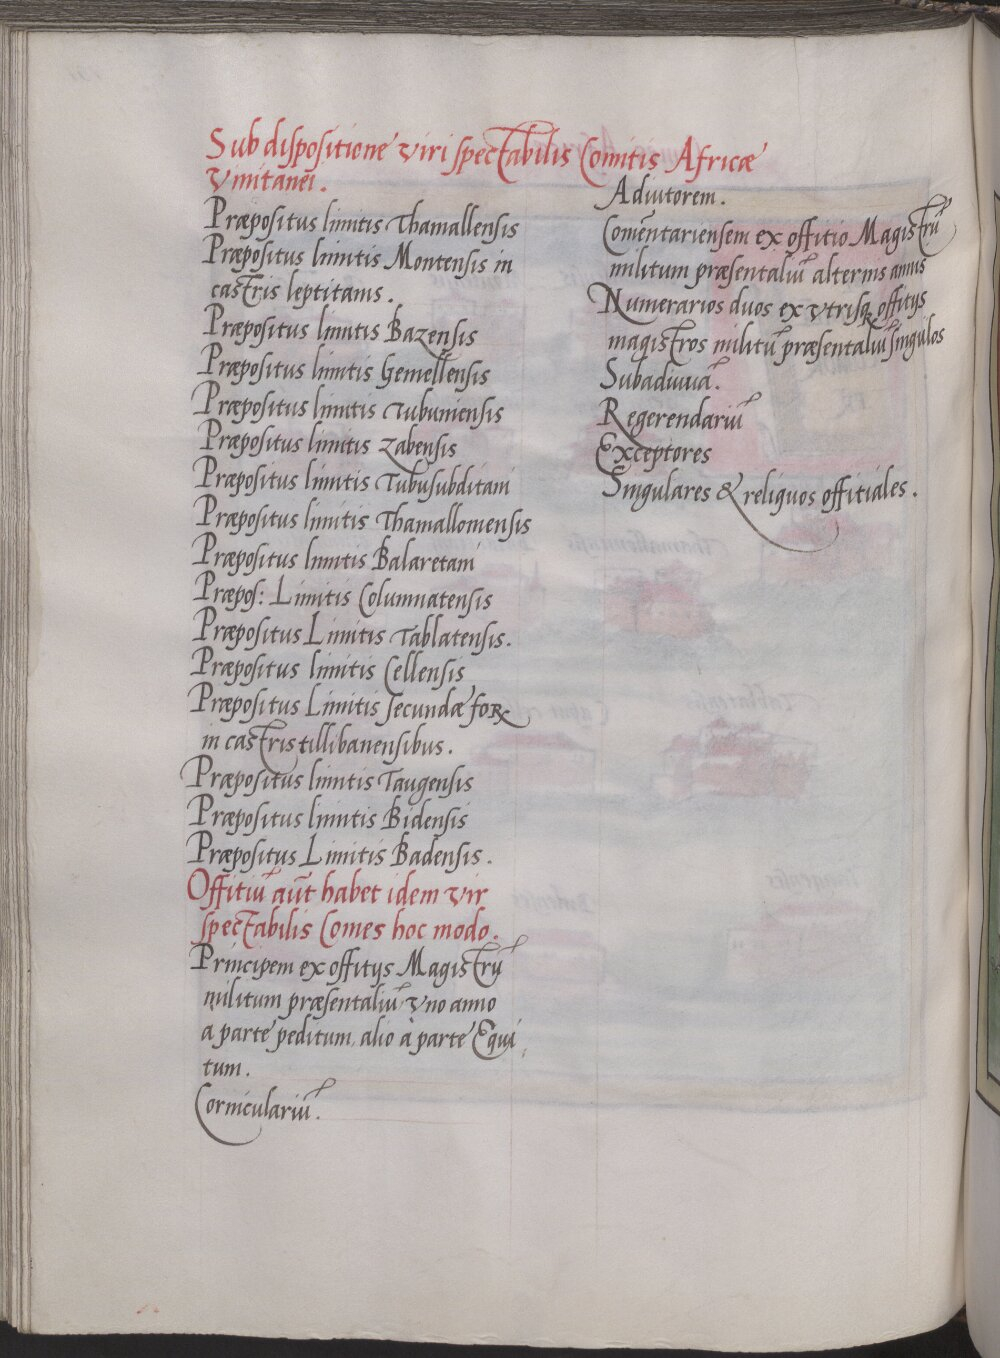 Sub dispositione viri spectabilis Comitis Africæ
Vmitanei.
Præpositus limitis Thamallensis
Præpositus limitis Montensis in
castris leptitanis.
Præpositus limitis Bazensis
Præpositus limitis Gemellensis
Præpositus limitis Tubuniensis
Præpositus limitis Zabensis
Præpositus limitis Tubusubditani
Præpositus limitis Thamallomensis
Præpositus limitis Balaretani
Præpos: Limitis Columnatensis
Præpositus Limitis Tablatensis.
Præpositus limitis Cellensis
Præpositus Limitis secundæ foꝝ
in castris tillibanensibus.
Præpositus limitis Taugensis
Præpositus limitis Bidensis
Præpositus Limitis Badensis.
Offitiū aūt habet idem vir
spectabilis Comes hoc modo.
Principem ex offitijs Magistrū
militum præsentaliū vno anno
a parte peditum, alio à parte Equi
tum.
Corniculariū.
Adiutorem.
Com̄entariensem ex offitio Magistrū
militum præsentaliū alternis annis
Numerarios duos ex vtrisqꝫ offitijs
magistros militū præsentaliū singulos
Subadiuuā.
Regerendariū
Exceptores
Singulares & reliquos offitiales.